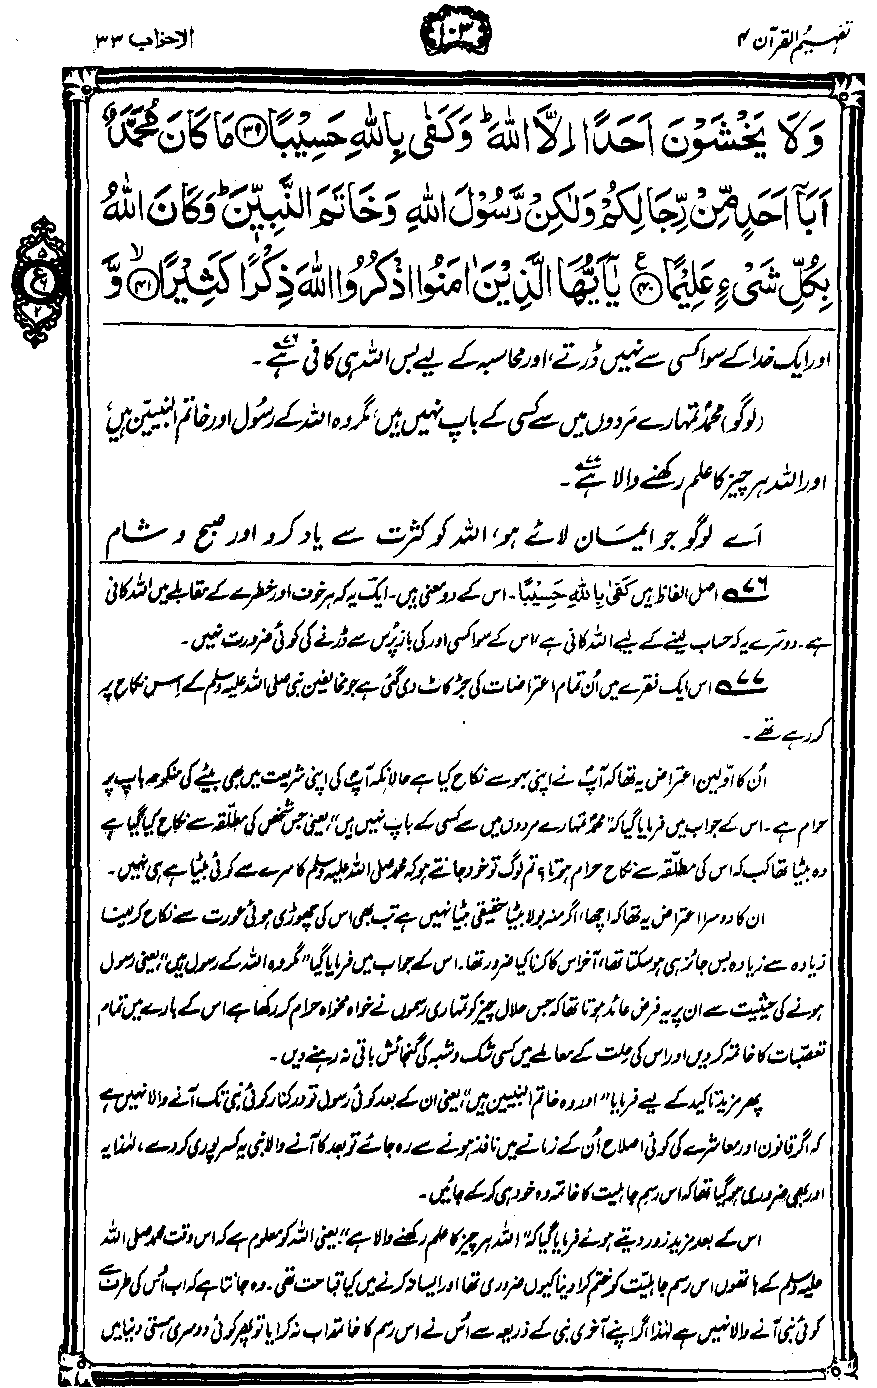 تفہیم القرآن ۴
۱۰۳
الاحزاب ۳۳
وَلَا يَخْشَوْنَ اَحَدًا اِلَّا اللّٰهَ ؕ وَكَفٰى بِاللّٰهِ حَسِيْبًا ﴿۳۹﴾ مَا كَانَ مُحَمَّدٌ
اَبَآ اَحَدٍ مِّنْ رِّجَالِكُمْ وَلٰكِنْ رَّسُوْلَ اللّٰهِ وَخَاتَمَ النَّبِيّٖنَ ؕ وَكَانَ اللّٰهُ
بِكُلِّ شَيْءٍ عَلِيْمًا ﴿۴۰﴾ ع يٰٓاَيُّهَا الَّذِيْنَ اٰمَنُوا اذْكُرُوا اللّٰهَ ذِكْرًا كَثِيْرًا ﴿۴۱﴾ وَّ
۵
ع
۲
اور ایک خدا کے سوا کسی سے نہیں ڈرتے، اور محاسبہ کے لیے بس اللہ ہی کافی ہے۷۶۔
(لوگو) محمدؐ تمہارے مَردوں میں سے کسی کے باپ نہیں ہیں، مگر وہ اللہ کے رسُول اور خاتم النبیّین ہیں،
اور اللہ ہر چیز کا علم رکھنے والا ہے۷۷۔
اَے لوگو جو ایمان لائے ہو، اللہ کو کثرت سے یاد کرو اور صبح و شام
۷۶ اصل الفاظ ہیں کَفٰی بِاللّٰہِ حَسِیْبًا۔ اس کے دو معنی ہیں۔ ایک یہ کہ ہر خوف اور خطرے کے مقابلے میں اللہ کافی
ہے۔ دوسرے یہ کہ حساب لینے کے لیے اللہ کافی ہے، اس کے سوا کسی اور کی باز پُرس سے ڈرنے کی کوئی ضرورت نہیں۔
۷۷ اس ایک فقرے میں اُن تمام اعتراضات کی جڑ کاٹ دی گئی ہے جو مخالفین نبی صلی اللہ علیہ وسلم کے اِس نکاح پر
کر رہے تھے۔
اُن کا اوّلین اعتراض یہ تھا کہ آپؐ نے اپنی بہو سے نکاح کیا ہے حالانکہ آپؐ کی اپنی شریعت میں بھی بیٹے کی منکوحہ باپ پر
حرام ہے۔ اس کے جواب میں فرمایا گیا کہ "محمدؐ تمہارے مردوں میں سے کسی کے باپ نہیں ہیں"، یعنی جس شخص کی مطلّقہ سے نکاح کیا گیا ہے
وہ بیٹا تھا کب کہ اس کی مطلّقہ سے نکاح حرام ہوتا؟ تم لوگ تو خود جانتے ہو کہ محمد صلی اللہ علیہ وسلم کا سرے سے کوئی بیٹا ہے ہی نہیں۔
ان کا دوسرا اعتراض یہ تھا کہ اچھا، اگر منہ بولا بیٹا حقیقی بیٹا نہیں ہے تب بھی اس کی چھوڑی ہوئی عورت سے نکاح کر لینا
زیادہ سے زیادہ بس جائز ہی ہو سکتا تھا، آخر اس کا کرنا کیا ضرور تھا۔ اس کے جواب میں فرمایا گیا "مگر وہ اللہ کے رسول ہیں"، یعنی رسول
ہونے کی حیثیت سے ان پر یہ فرض عائد ہوتا تھا کہ جس حلال چیز کو تمہاری رسموں نے خواہ مخواہ حرام کر رکھا ہے اس کے بارے میں تمام
تعصّبات کا خاتمہ کر دیں اور اس کی حِلّت کے معاملے میں کسی شک و شبہ کی گنجائش باقی نہ رہنے دیں۔
پھر مزید تاکید کے لیے فرمایا "اور وہ خاتم النبیین ہیں"، یعنی ان کے بعد کوئی رسول تو درکنار کوئی نبی تک آنے والا نہیں ہے
کہ اگر قانون اور معاشرے کی کوئی اصلاح اُن کے زمانے میں نافذ ہونے سے رہ جائے تو بعد کا آنے والا نبی یہ کسر پوری کر دے، لہٰذا یہ
اور بھی ضروری ہو گیا تھا کہ اس رسمِ جاہلیت کا خاتمہ وہ خود ہی کر کے جائیں۔
اس کے بعد مزید زور دیتے ہوئے فرمایا گیا کہ "اللہ ہر چیز کا علم رکھنے والا ہے"، یعنی اللہ کو معلوم ہے کہ اس وقت محمد صلی اللہ
علیہ وسلم کے ہاتھوں اس رسمِ جاہلیت کو ختم کرا دینا کیوں ضروری تھا اور ایسا نہ کرنے میں کیا قباحت تھی۔ وہ جانتا ہے کہ اب اُس کی طرف سے
کوئی نبی آنے والا نہیں ہے لہٰذا اگر اپنے آخری نبی کے ذریعہ سے اُس نے اس رسم کا خاتمہ اب نہ کرایا تو پھر کوئی دوسری ہستی دنیا میں